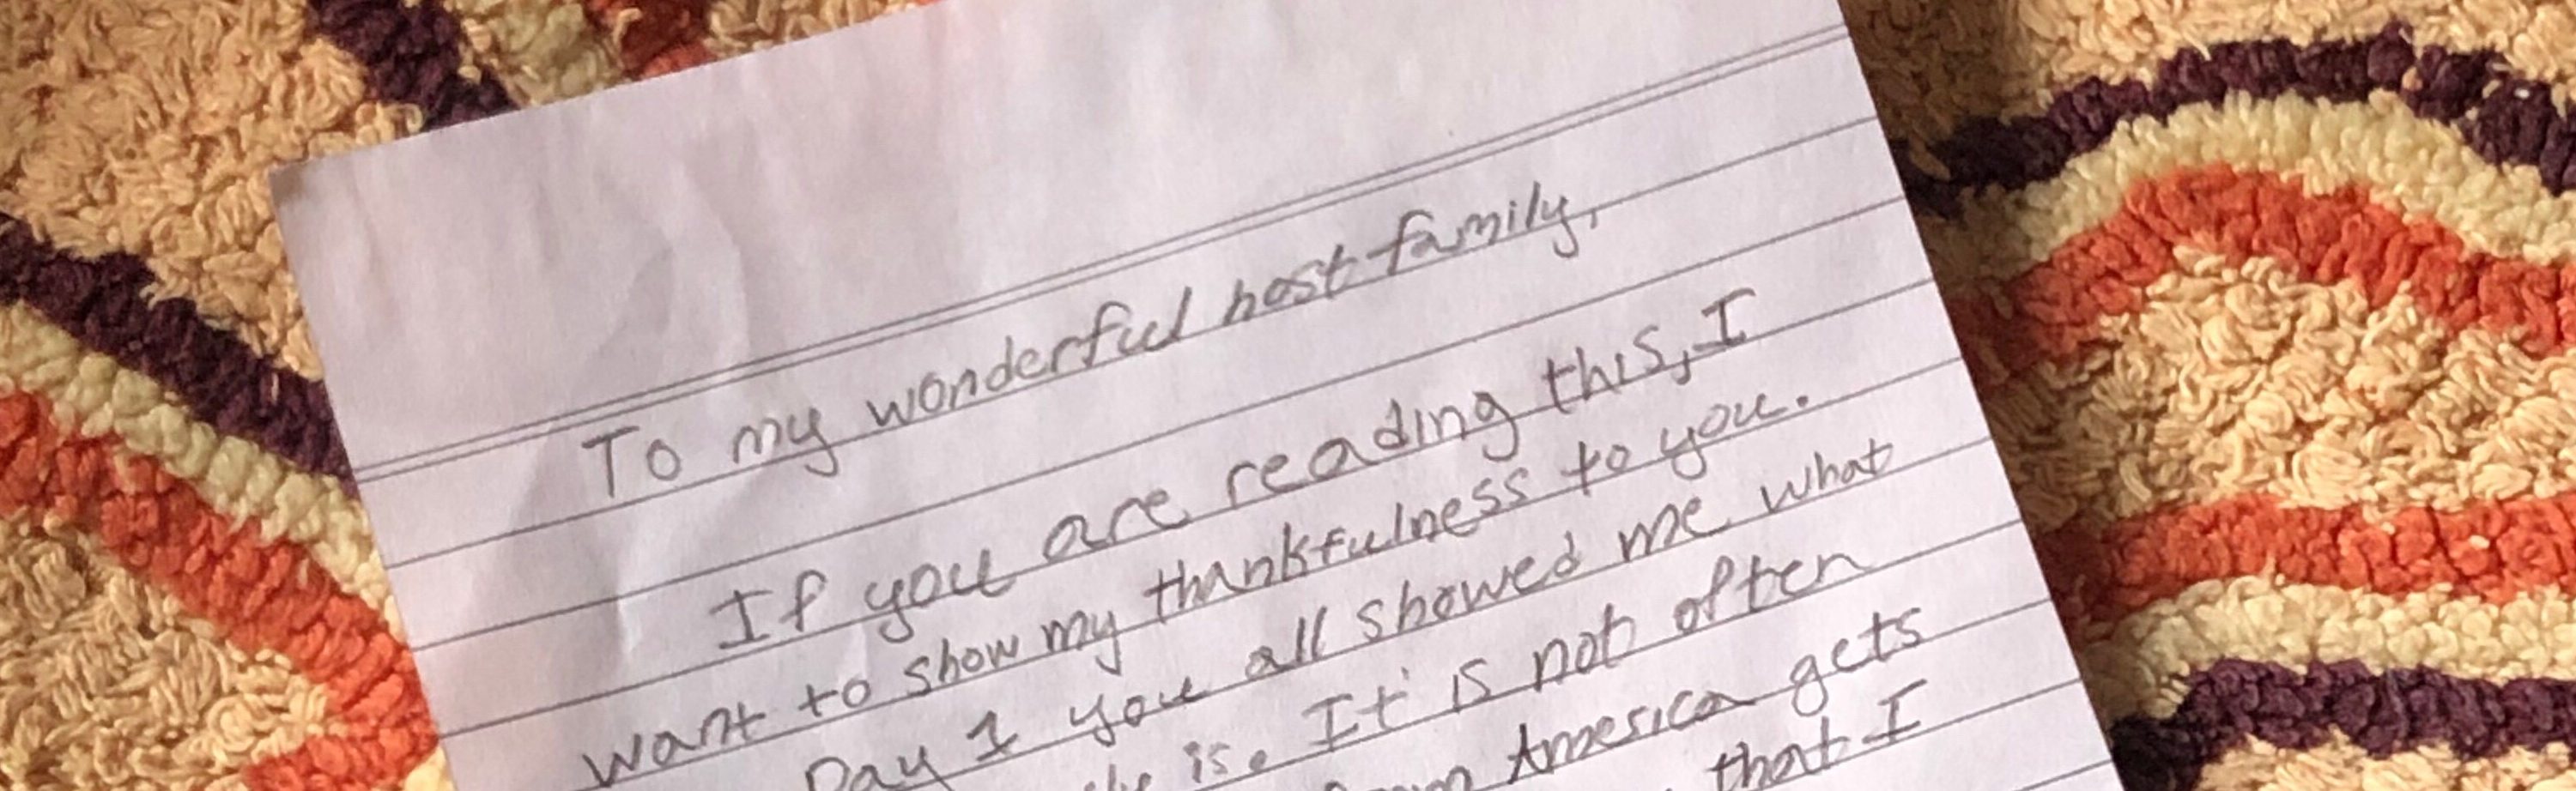 To my wonderful host family,
If you are reading this, I
want to show my thankfulness to you.
Day 1 you all showed me what
is. It is not often
from America gets
that I